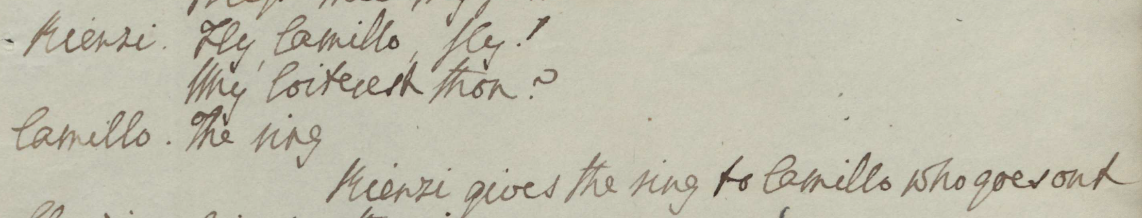 Rienzi. Fly, Camillo, fly!
Why loiterest thou?
Camillo. The ring
Rienzi gives the ring to Camillo who goes out